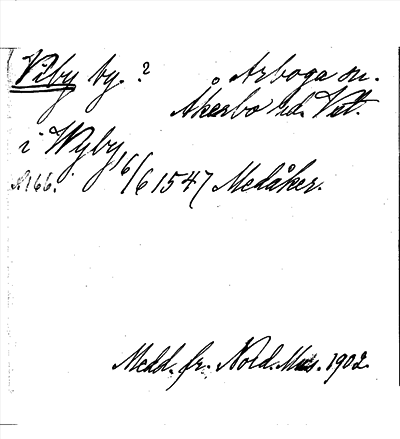 Viby by. ? Arboga sn.
Åkerbo hd. Vstl.
i Wyby 16/6 1547 Medåker.
№ 166.
Medd. fr. Nord. Mus. 1902.